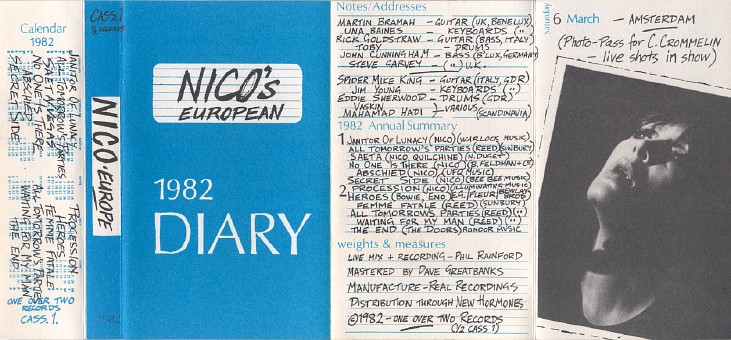 Calendar
1982
JANITOR OF LUNACY
ALL TOMORROW'S PARTIES
SAETA / VEGAS
NO ONE IS THERE
ABSCHIED
SECRET SIDE
PROCESSION
HEROES
FEMME FATALE
ALL TOMORROW'S PARTIES
WAITING FOR MY MAN
THE END
ONE OVER TWO
RECORDS
CASS. 1.
CASS. 1
½ RECORDS
NICO·EUROPE
1982
NICO'S
EUROPEAN
1982
DIARY
Notes/Addresses
MARTIN BRAMAH - GUITAR (UK, BENELUX)
UNA BAINES - KEYBOARDS (")
RICK GOLDSTRAW - GUITAR (BASS, ITALY)
TOBY - DRUMS
JOHN CUNNINGHAM - BASS (B'LUX, GERMANY)
STEVE GARVEY - (") U.K.
SPIDER MIKE KING - GUITAR (ITALY, GDR)
JIM YOUNG - KEYBOARDS (")
EDDIE SHERWOOD - DRUMS (GDR)
VASKIN
MAHAMAD HADI } VARIOUS (SCANDINAVIA)
1982 Annual Summary
1 JANITOR OF LUNACY (NICO) (WARLOCK MUSIC)
ALL TOMORROW'S PARTIES (REED) SUNBURY
SAETA (NICO, QUILCHINE) (N. DUCET)
NO ONE IS THERE (NICO) (B. FELDMAN+CO)
ABSCHIED (NICO) (UFG MUSIC)
SECRET SIDE (NICO) (BEE BEE MUSIC)
2 PROCESSION (NICO) (ILLUMINATING MUSIC)
HEROES (BOWIE, ENO) (E.G. / FLEUR / BEWLAY BROS)
FEMME FATALE (REED) (SUNBURY)
ALL TOMORROWS PARTIES (REED) (")
WAITING FOR MY MAN (REED) (")
THE END (THE DOORS) RONDOR MUSIC
weights & measures
LIVE MIX + RECORDING - PHIL RAINFORD
MASTERED BY DAVE GREATBANKS
MANUFACTURE - REAL RECORDINGS
DISTRIBUTION THROUGH NEW HORMONES
©1982 - ONE OVER TWO RECORDS
(½ CASS 1)
Saturday
6 March - AMSTERDAM
(PHOTO-PASS FOR C. CROMMELIN
- LIVE SHOTS IN SHOW)